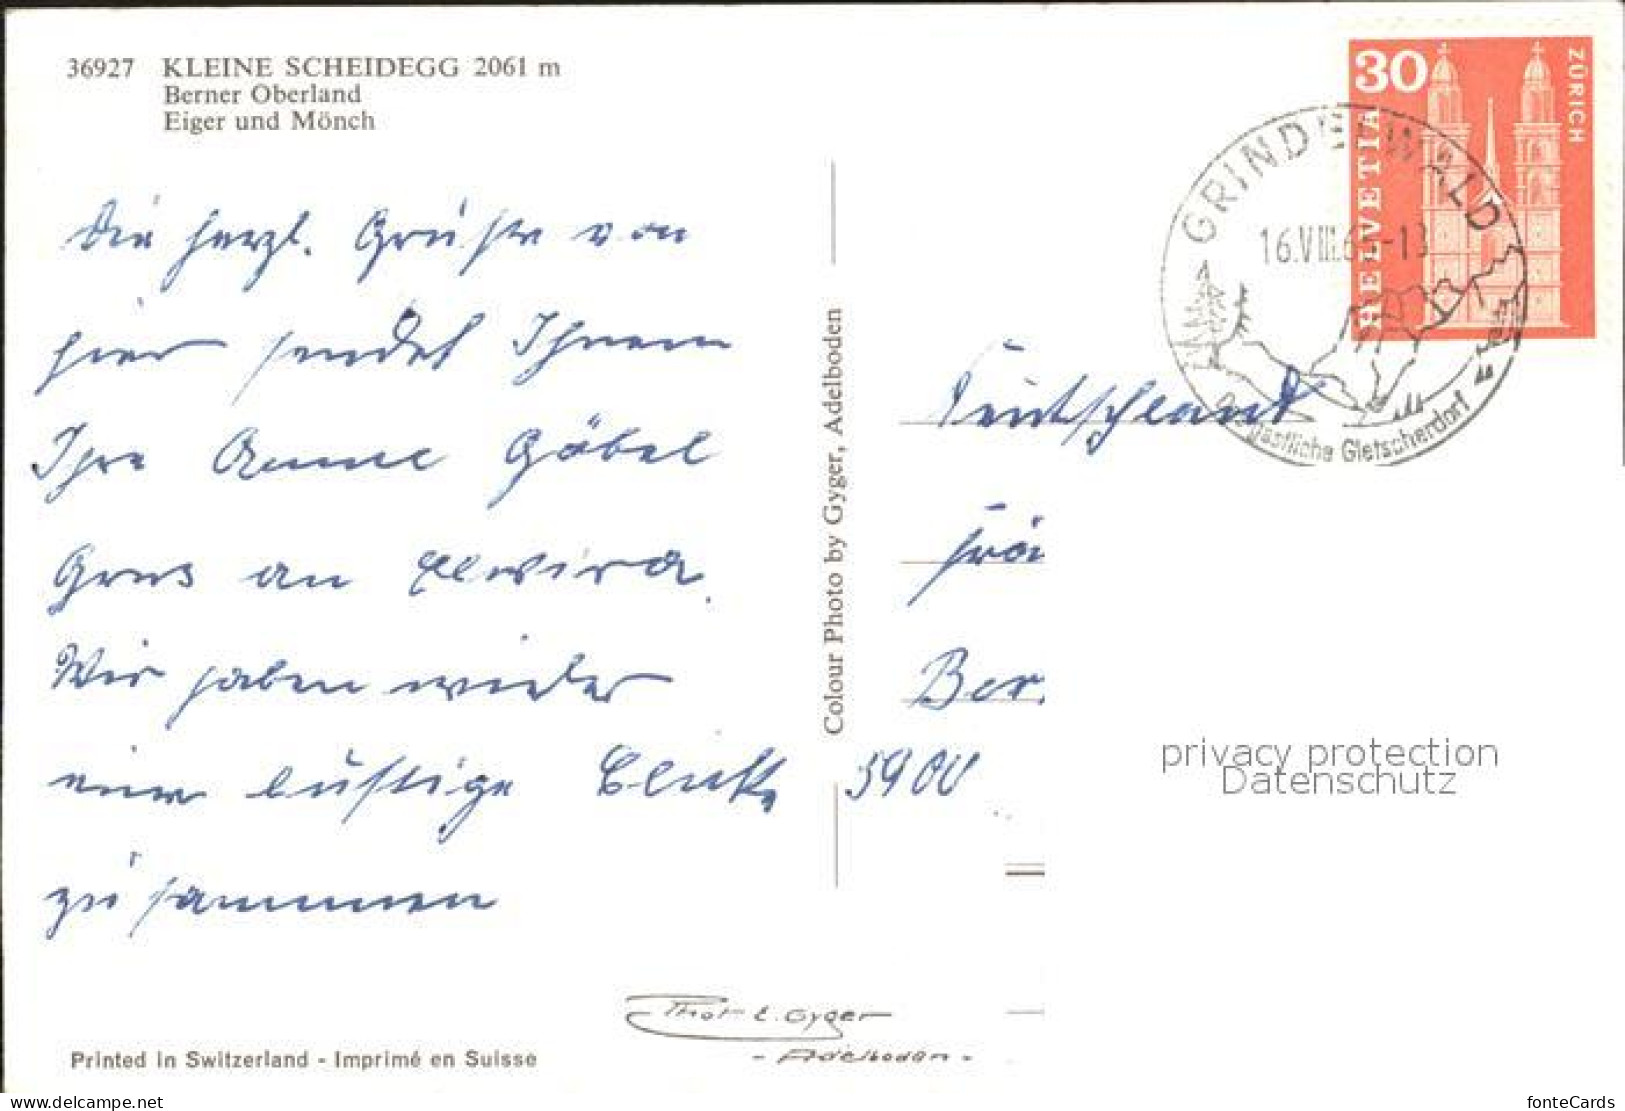 36927 KLEINE SCHEIDEGG 2061 m
Berner Oberland
Eiger und Mönch
Die herzl. Grüße von
hier sendet Ihnen
Ihre Anne Göbel
Gruß an Elwira.
Wir haben wieder
eine lustige
zusammen
Colour Photo by Gyger, Adelboden
30
HELVETIA
ZÜRICH
GRINDELWALD
16.VIII.6 -13
Das gastliche Gletscherdorf
Deutschland
Frä
Ber
5900
privacy protection
Datenschutz
Phot E. Gyger
- Adelboden -
Printed in Switzerland - Imprimé en Suisse
www.delcampe.net
fonteCards